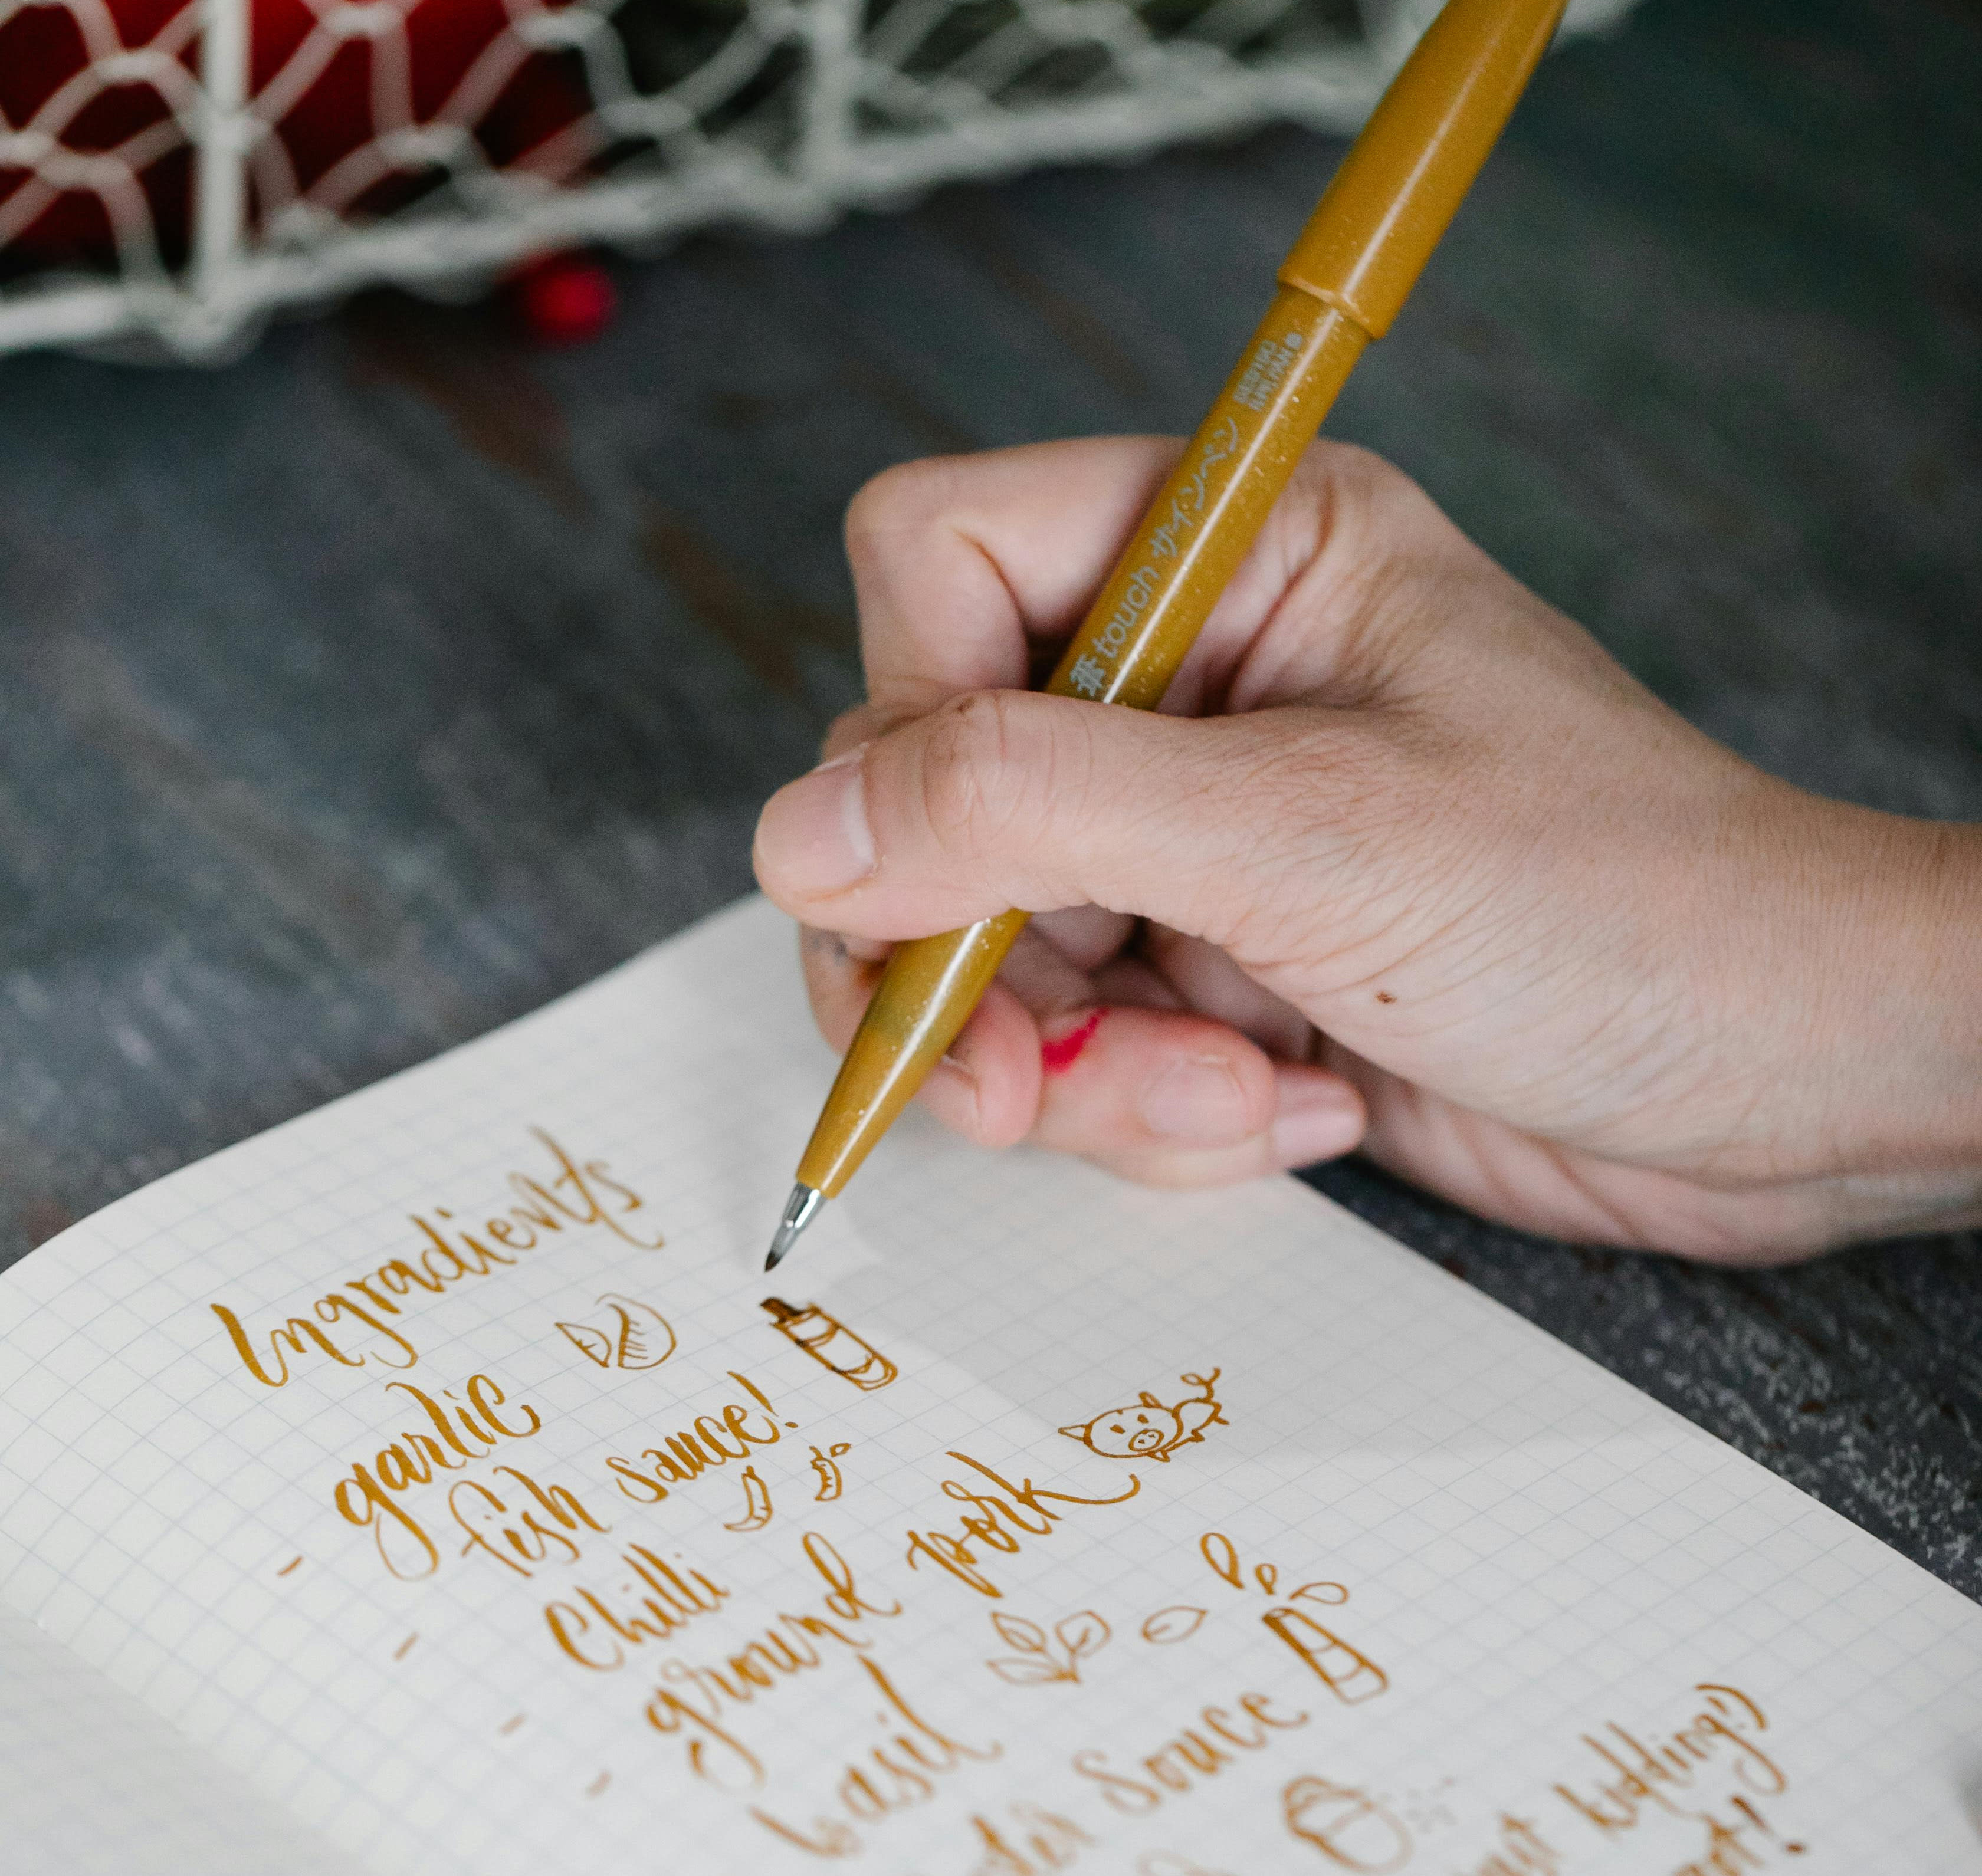 touch サインペン
Ingradients
- garlic
- fish sauce!
- Chilli
- ground pork
basil
Souce
kidding!)